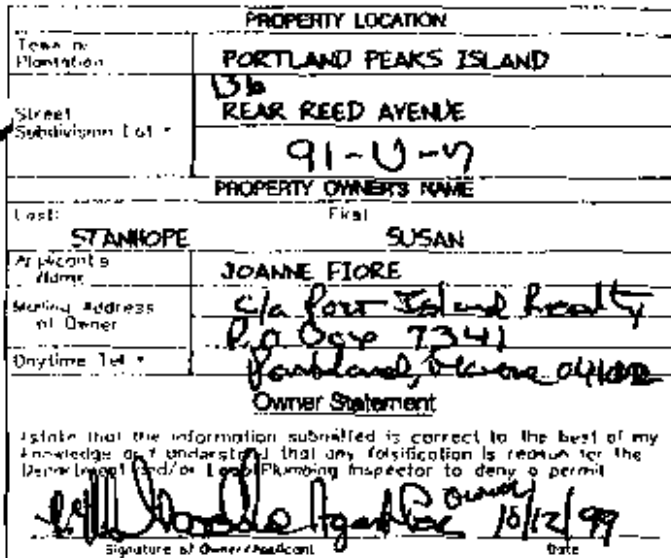 PROPERTY LOCATION
Town or Plantation PORTLAND PEAKS ISLAND
136
Street REAR REED AVENUE
Subdivision Lot # 91-U-7
PROPERTY OWNER'S NAME
Last: First
STANHOPE SUSAN
Applicant's Name JOANNE FIORE
Mailing Address of Owner c/o Port Island Realty
P.O Box 7341
Daytime Tel # Portland, Maine
Owner Statement
I state that the information submitted is correct to the best of my
knowledge and understand that any falsification is reason for the
Department and/or Local Plumbing Inspector to deny a permit
Agent for Owner 10/12/99
Signature of Owner/Applicant Date